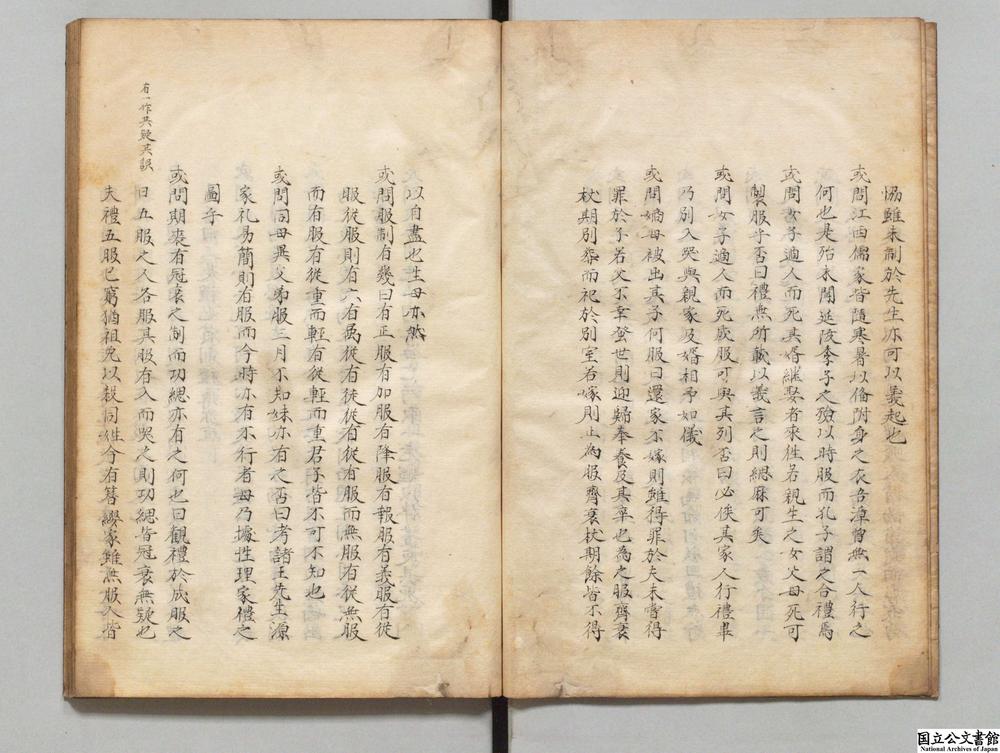 惕雖未制於先生亦可以義起也
或問江西儒家皆隨寒暑以倫附身之衣吾漳曾無一人行之
何也是殆未聞延陵季子之殮以時服而孔子謂之合禮焉
或問女子適人而死其婿繼娶者來徃若親生之女父母死可
製服乎否曰禮無所載以義言之則緦麻可矣
或問女子適人而死成服可與其列否曰必俟其家人行禮畢
乃別入哭與親家及婿相弔如儀
或問嫡母被出其子何服曰還家不嫁則雖得罪於夫未嘗得
罪於子若父不幸蚤世則迎歸奉養及其卒也為之服齊衰
杖期別葬而祀於別室若嫁則止為服齊衰杖期餘皆不得
以自盡也生母亦然
或問服制有幾曰有正服有加服有降服有報服有義服有從
服從服則有六有屬從有徒從有從有服而無服有從無服
而有服有從重而輕有從輕而重君子皆不可不知也
或問同母異父弟服三月不知妹亦有之否曰考諸王先生源
家礼易簡則有服而今時亦有不行者毋乃據性理家禮之
圖乎
或問期衰有冠衰之制而功緦亦有之何也曰觀禮於成服之
日五服之人各服其服有入而哭之則功緦皆冠衰無疑也
夫禮五服已窮猶祖免以殺同姓今有簪纓家雖無服人皆
有一作其疑其誤
国立公文書館
National Archives of Japan